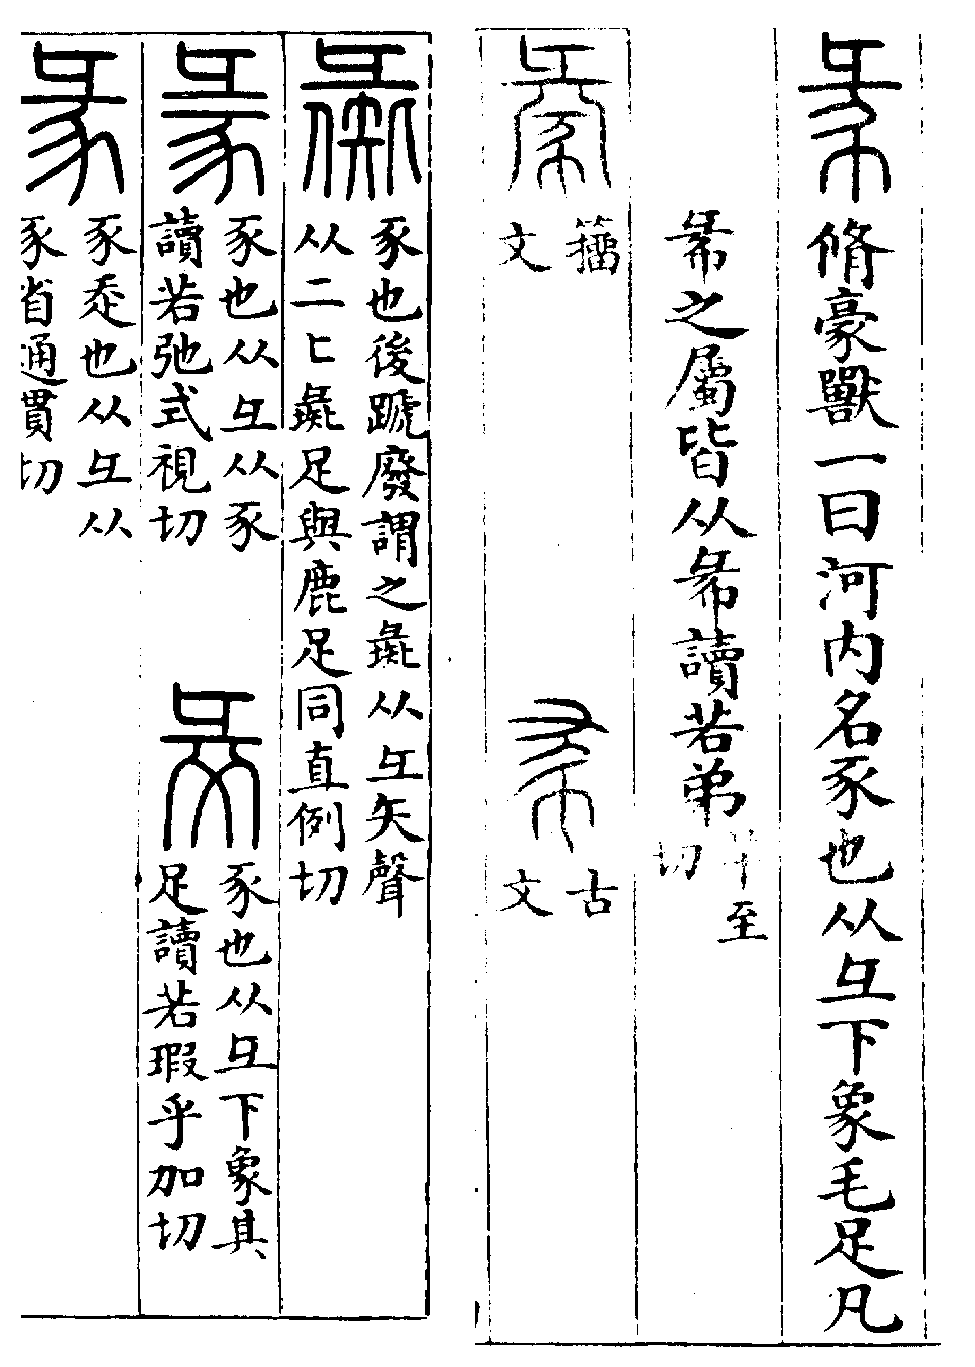 㣇脩豪獸一曰河内名豕也从彑下象毛足凡
㣇之屬皆从㣇讀若弟
羊至
切
籒
文
古
文
彘
豕也後蹏廢謂之彘从彑矢聲
从二匕彘足與鹿足同直例切
豕也从彑从豕
讀若弛式視切
豕也从彑下象其
足讀若瑕乎加切
彖
豕走也从彑从
豕省通貫切